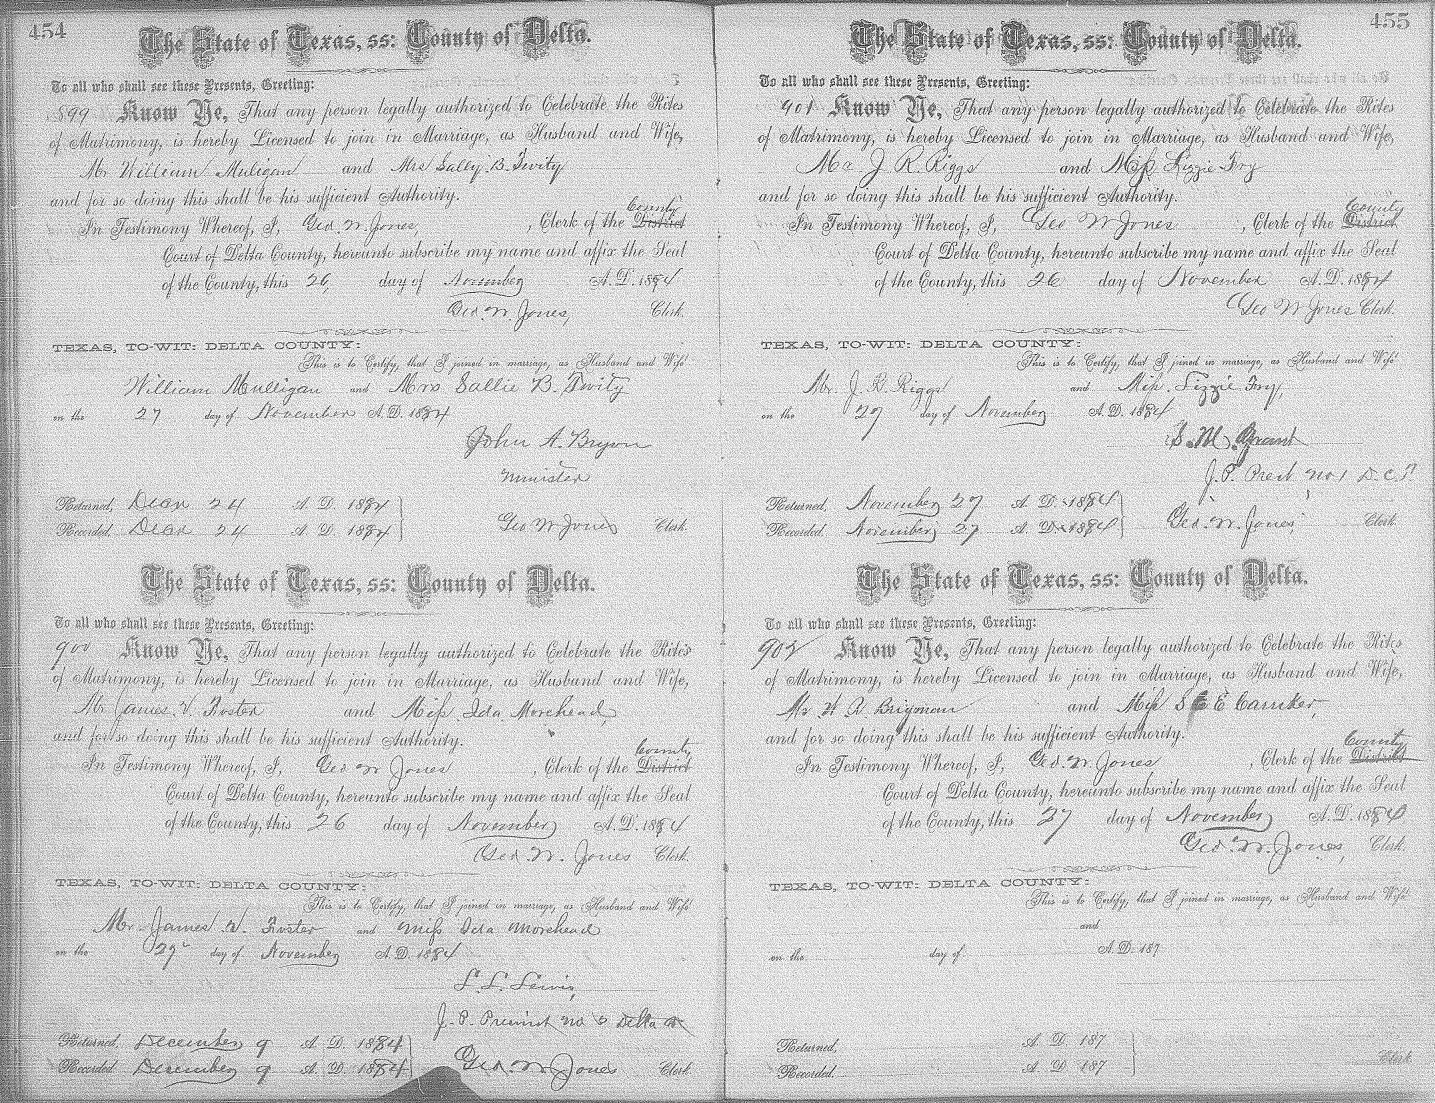 454
The State of Texas, ss: County of Delta.
To all who shall see these Presents, Greeting:
899 Know Ye, That any person legally authorized to Celebrate the Rites
of Matrimony, is hereby Licensed to join in Marriage, as Husband and Wife,
Mr William Muligan and Mrs Sally B. Twity
and for so doing this shall be his sufficient Authority.
County
In Testimony Whereof, I, Geo. W. Jones, , Clerk of the District
Court of Delta County, hereunto subscribe my name and affix the Seal
of the County, this 26, day of November A. D. 1884
Geo. W. Jones, Clerk.
TEXAS, TO-WIT: DELTA COUNTY:
This is to Certify, that I joined in marriage, as Husband and Wife
William Mulligan and Mrs Sallie B. Twity
on the 27 day of November A. D. 1884
John A. Bryson
Minister
Returned, 24 A. D. 1884
Recorded, 24 A. D. 1884
Geo W Jones Clerk
The State of Texas, ss: County of Delta.
To all who shall see these Presents, Greeting:
900 Know Ye, That any person legally authorized to Celebrate the Rites
of Matrimony, is hereby Licensed to join in Marriage, as Husband and Wife,
Mr James V. Foster and Miss Ida Morehead,
and for so doing this shall be his sufficient Authority.
County
In Testimony Whereof, I, Geo W Jones , Clerk of the District
Court of Delta County, hereunto subscribe my name and affix the Seal
of the County, this 26 day of November A. D. 1884
Geo. W. Jones Clerk.
TEXAS, TO-WIT: DELTA COUNTY:
This is to Certify, that I joined in marriage, as Husband and Wife
Mr James V. Foster and Miss Ida Morehead
on the 27 day of November A. D. 1884
L. L. Lewis,
J. P. Precinct no Delta
Returned, December 9 A. D. 1884
Recorded December 9 A. D. 1884
Geo. W Jones Clerk.
455
The State of Texas, ss: County of Delta.
To all who shall see these Presents, Greeting:
901 Know Ye, That any person legally authorized to Celebrate the Rites
of Matrimony, is hereby Licensed to join in Marriage, as Husband and Wife,
Mr J R. Riggs and Miss Lizzie Fry
and for so doing this shall be his sufficient Authority.
County
In Testimony Whereof, I, Geo W Jones , Clerk of the District
Court of Delta County, hereunto subscribe my name and affix the Seal
of the County, this 26 day of November A. D. 1884
Geo W Jones Clerk.
TEXAS, TO-WIT: DELTA COUNTY:
This is to Certify, that I joined in marriage, as Husband and Wife
Mr. J. R. Riggs and Miss. Lizzie Fry,
on the 27 day of November A. D. 1884
S. M. Grant
J. P. Prect no 1 D. C. T.
Returned, November 27 A. D. 1884
Recorded. November 27 A. D. 1884
Geo. W. Jones, Clerk.
The State of Texas, ss: County of Delta.
To all who shall see these Presents, Greeting:
902 Know Ye, That any person legally authorized to Celebrate the Rites
of Matrimony, is hereby Licensed to join in Marriage, as Husband and Wife,
Mr H A Brigman and Miss S E Camker,
and for so doing this shall be his sufficient Authority.
County
In Testimony Whereof, I, Geo. W. Jones , Clerk of the District
Court of Delta County, hereunto subscribe my name and affix the Seal
of the County, this 27 day of November A. D. 1884
Geo. W. Jones, Clerk.
TEXAS, TO-WIT: DELTA COUNTY:
This is to Certify, that I joined in marriage, as Husband and Wife
and
on the day of A. D. 187
Returned, A. D. 187
Recorded. A. D. 187
Clerk